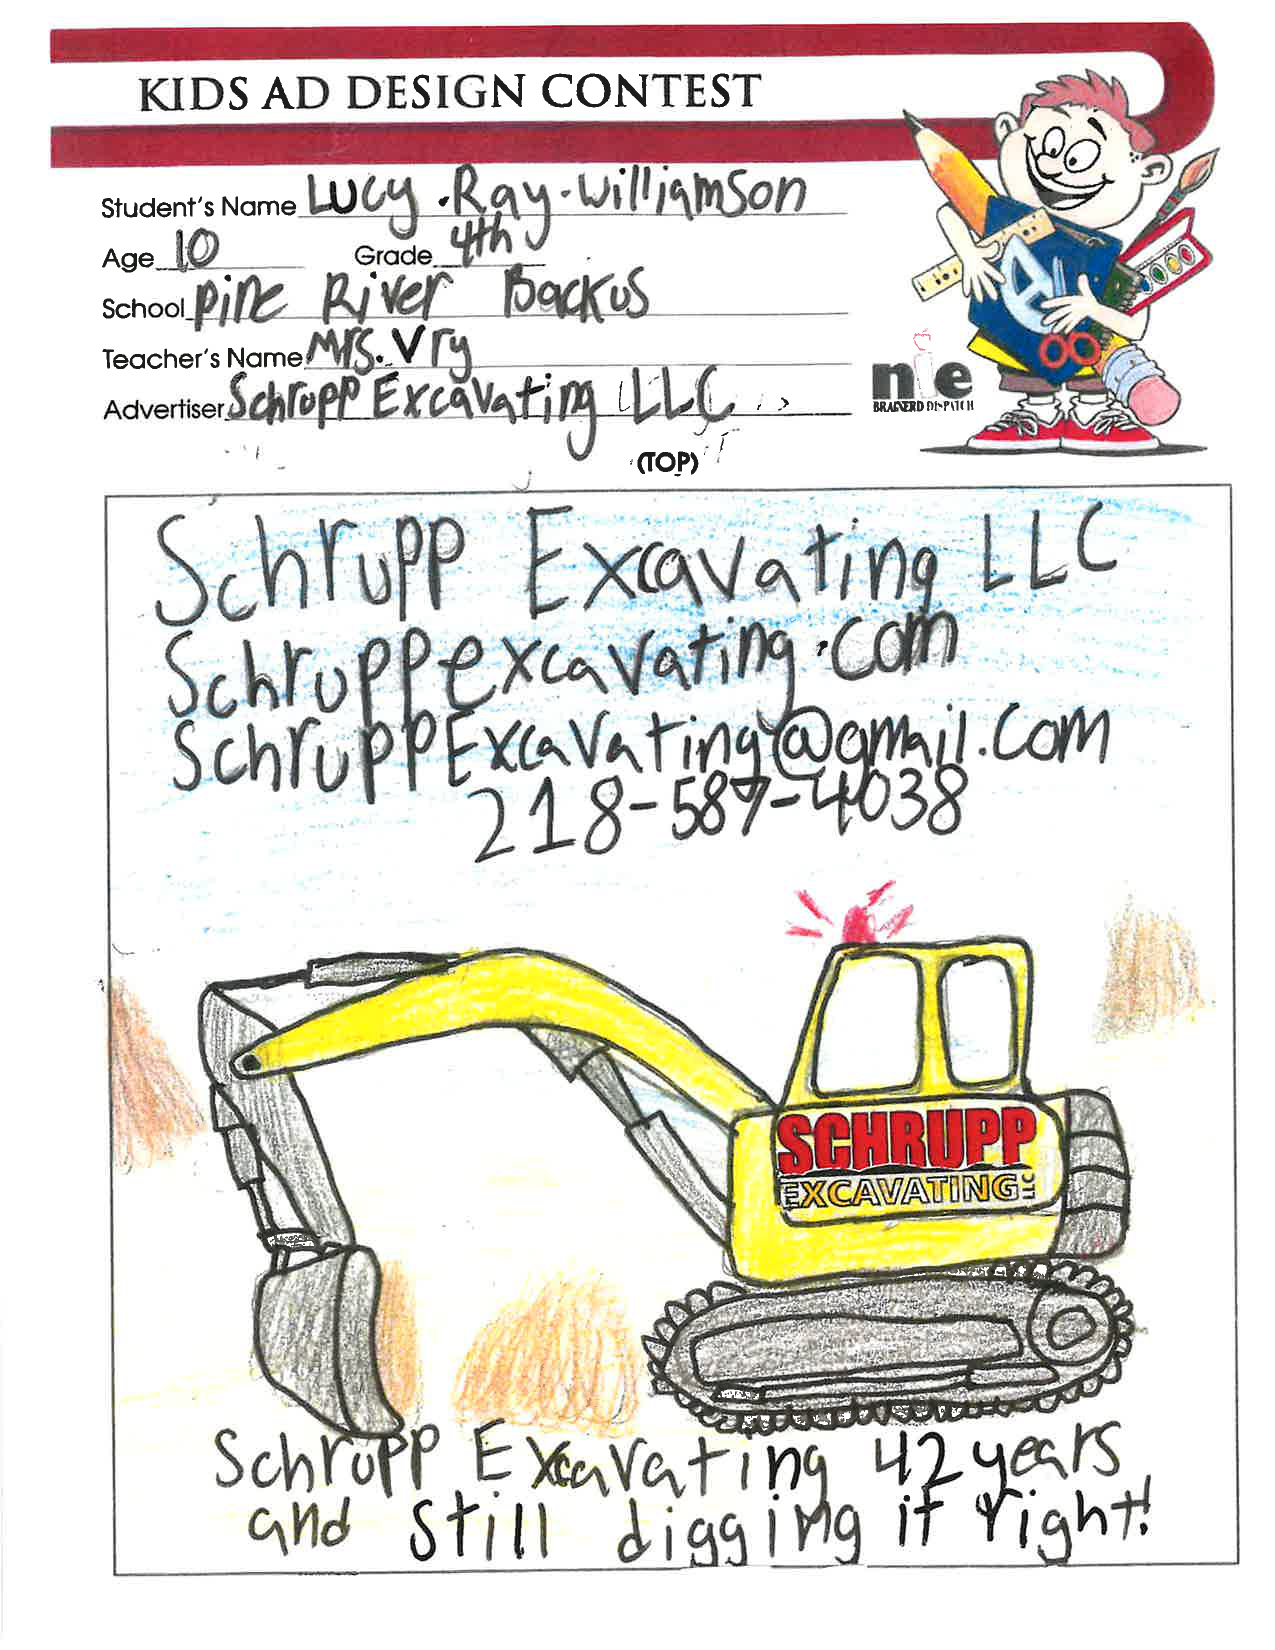 KIDS AD DESIGN CONTEST
Student's Name Lucy.Ray-Williamson
Age 10 Grade 4th
School Pine River Backus
Teacher's Name Mrs. Vry
Advertiser Schrupp Excavating LLC
nie
BRAINERD DISPATCH
(TOP)
Schrupp Excavating LLC
Schruppexcavating.com
SchruppExcavating@gmail.com
218-587-4038
SCHRUPP
EXCAVATING LLC
Schrupp Excavating 42 years
and still digging it right!